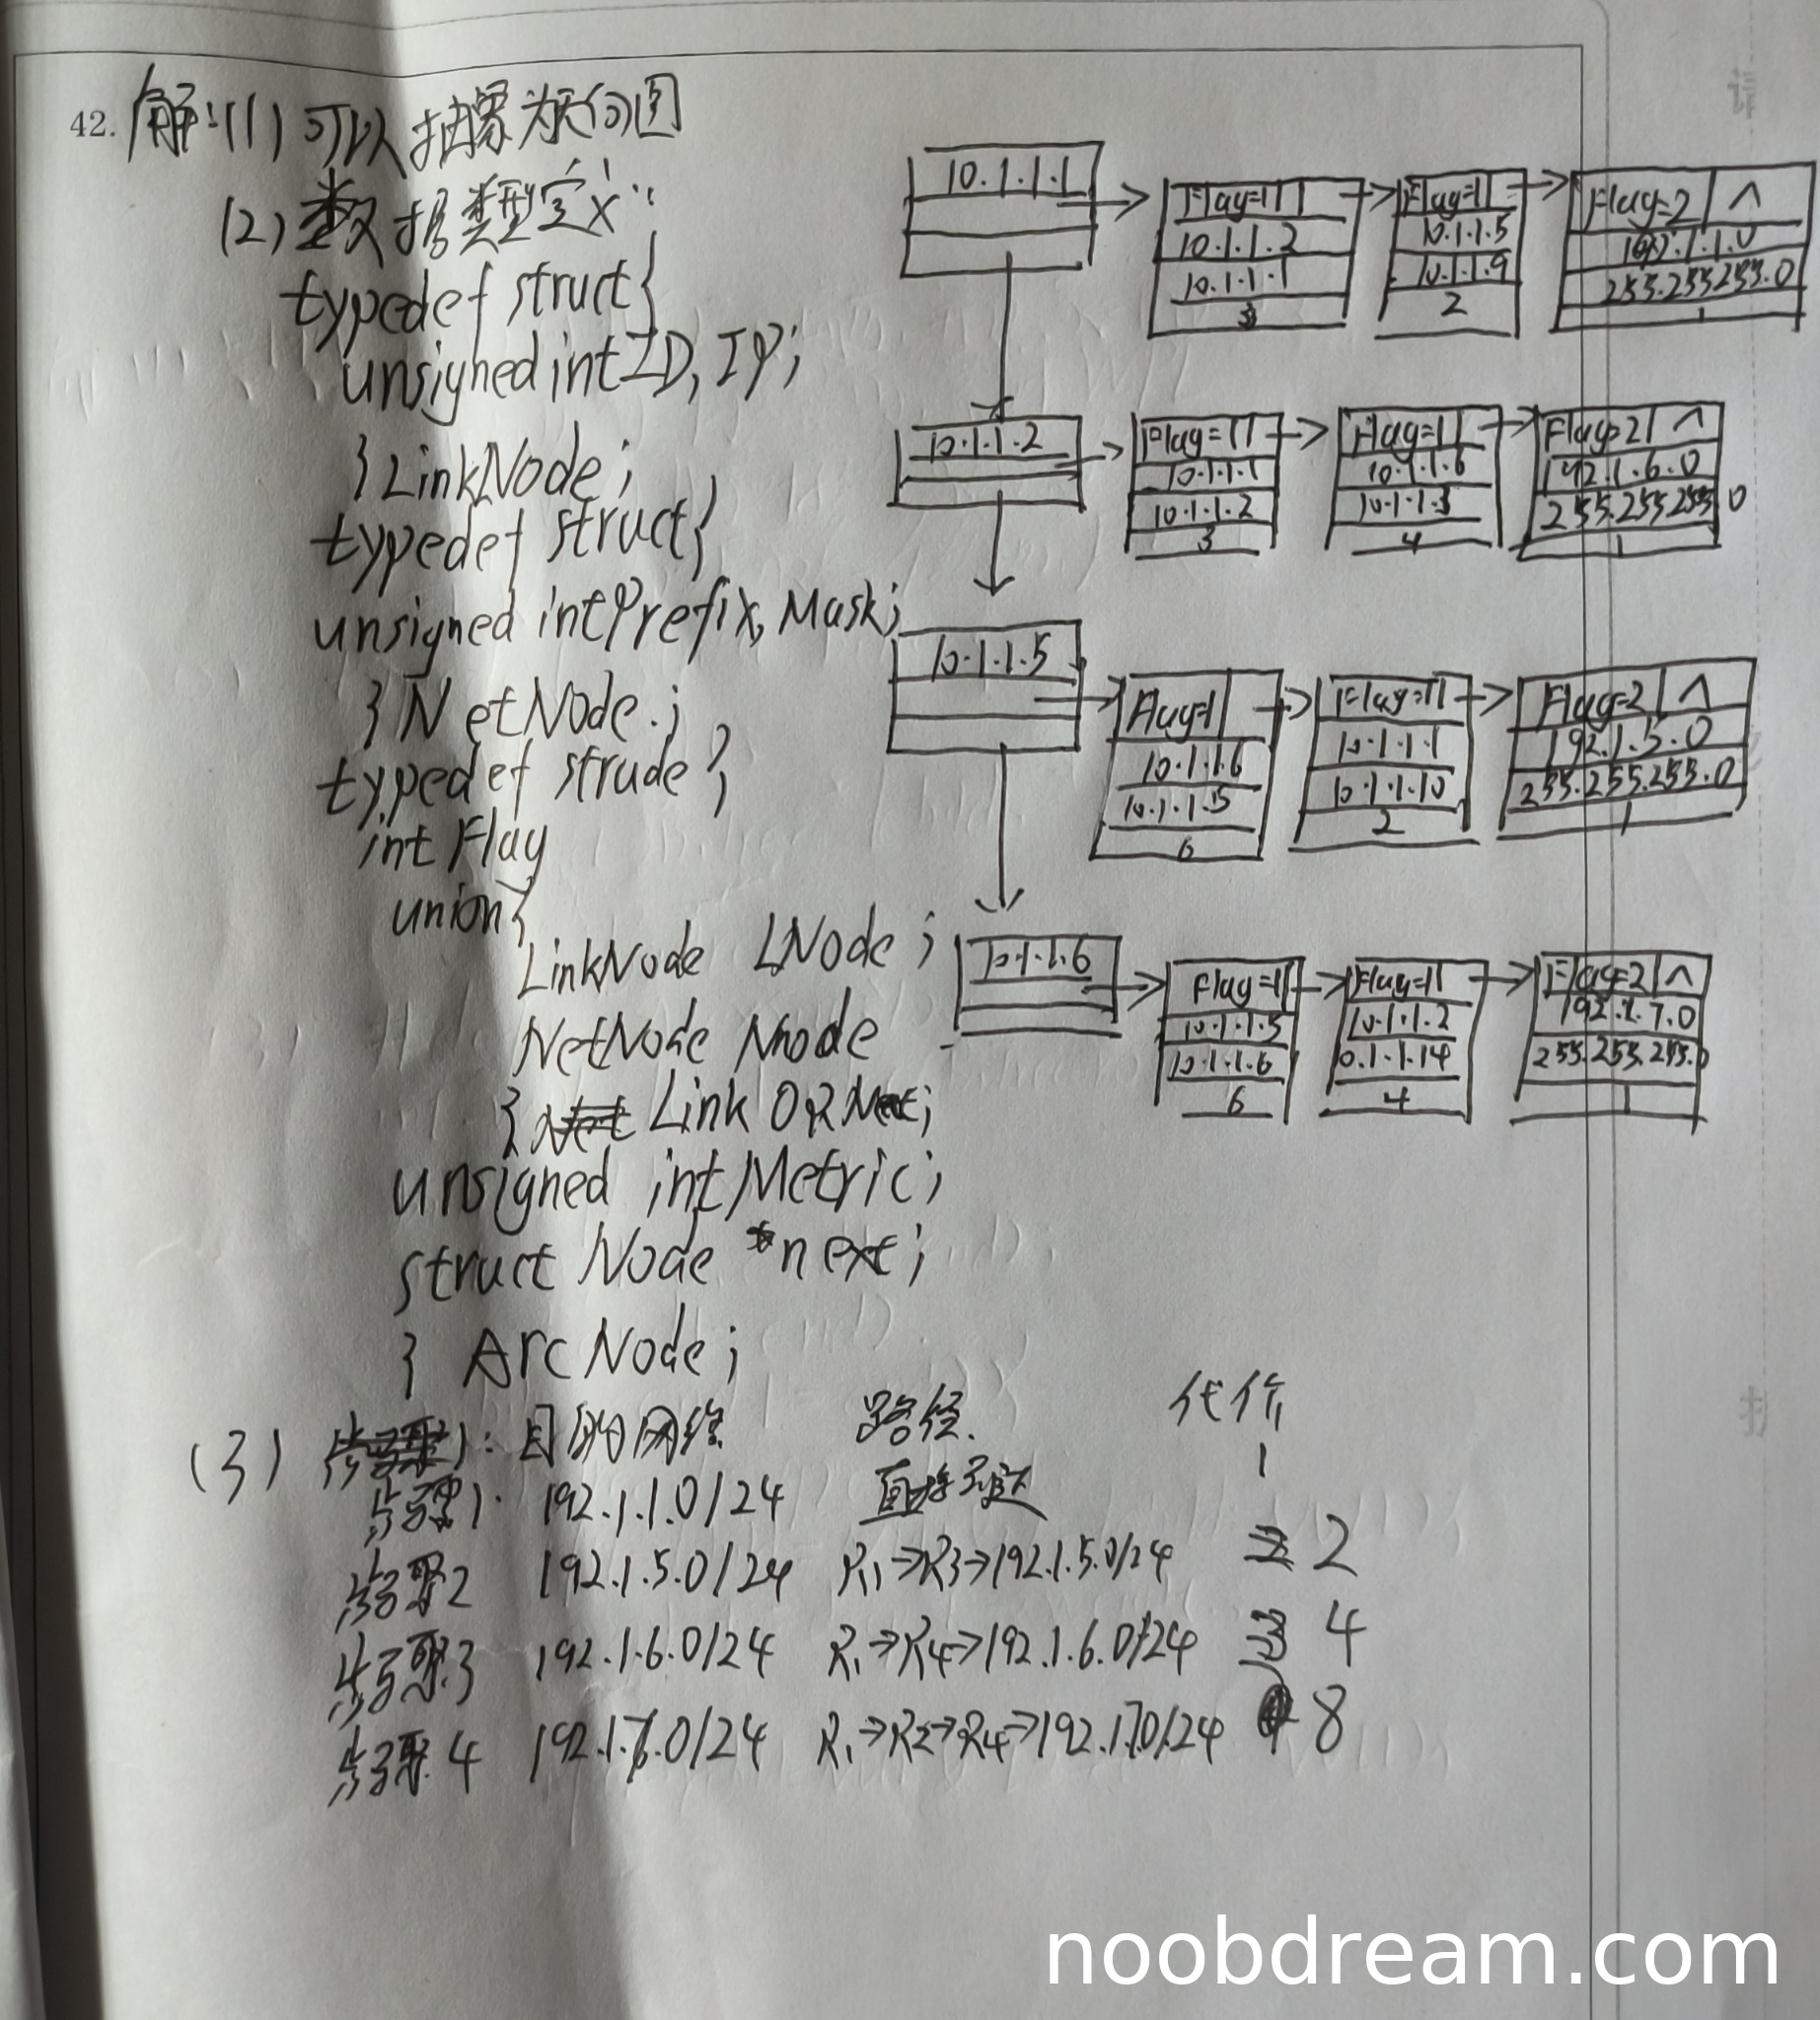 42. 解:(1) 可以抽象为无向图
(2) 数据类型定义:
typedef struct{
unsigned int ID, IP;
} LinkNode;
typedef struct{
unsigned int Prefix, Mask;
} NetNode.;
typedef strude {
int Flag
union{
LinkNode LNode;
NetNode Nnode
} Link ORNet;
unsigned int Metric;
struct Node *next;
} ArcNode;
10.1.1.1
Flag=1
10.1.1.2
10.1.1.1
3
Flag=1
10.1.1.5
10.1.1.9
2
Flag=2 ∧
192.1.1.0
255.255.255.0
1
10.1.1.2
Flag=1
10.1.1.1
10.1.1.2
3
Flag=1
10.1.1.6
4
Flag=2 ∧
192.1.6.0
255.255.255.0
1
10.1.1.5
Flag=1
10.1.1.6
10.1.1.5
6
Flag=1
10.1.1.1
10.1.1.10
2
Flag=2 ∧
192.1.5.0
255.255.255.0
1
10.1.1.6
Flag=1
10.1.1.5
10.1.1.6
6
Flag=1
10.1.1.2
0.1.1.14
4
Flag=2 ∧
192.1.7.0
255.255.255.0
1
(3) 目的网络 路径. 代价
步骤1. 192.1.1.0/24 直接到达 1
步骤2 192.1.5.0/24 R1→R3→192.1.5.0/24 2
步骤3 192.1.6.0/24 R1→R4→192.1.6.0/24 4
步骤4 192.1.7.0/24 R1→R2→R4→192.1.7.0/24 8
noobdream.com